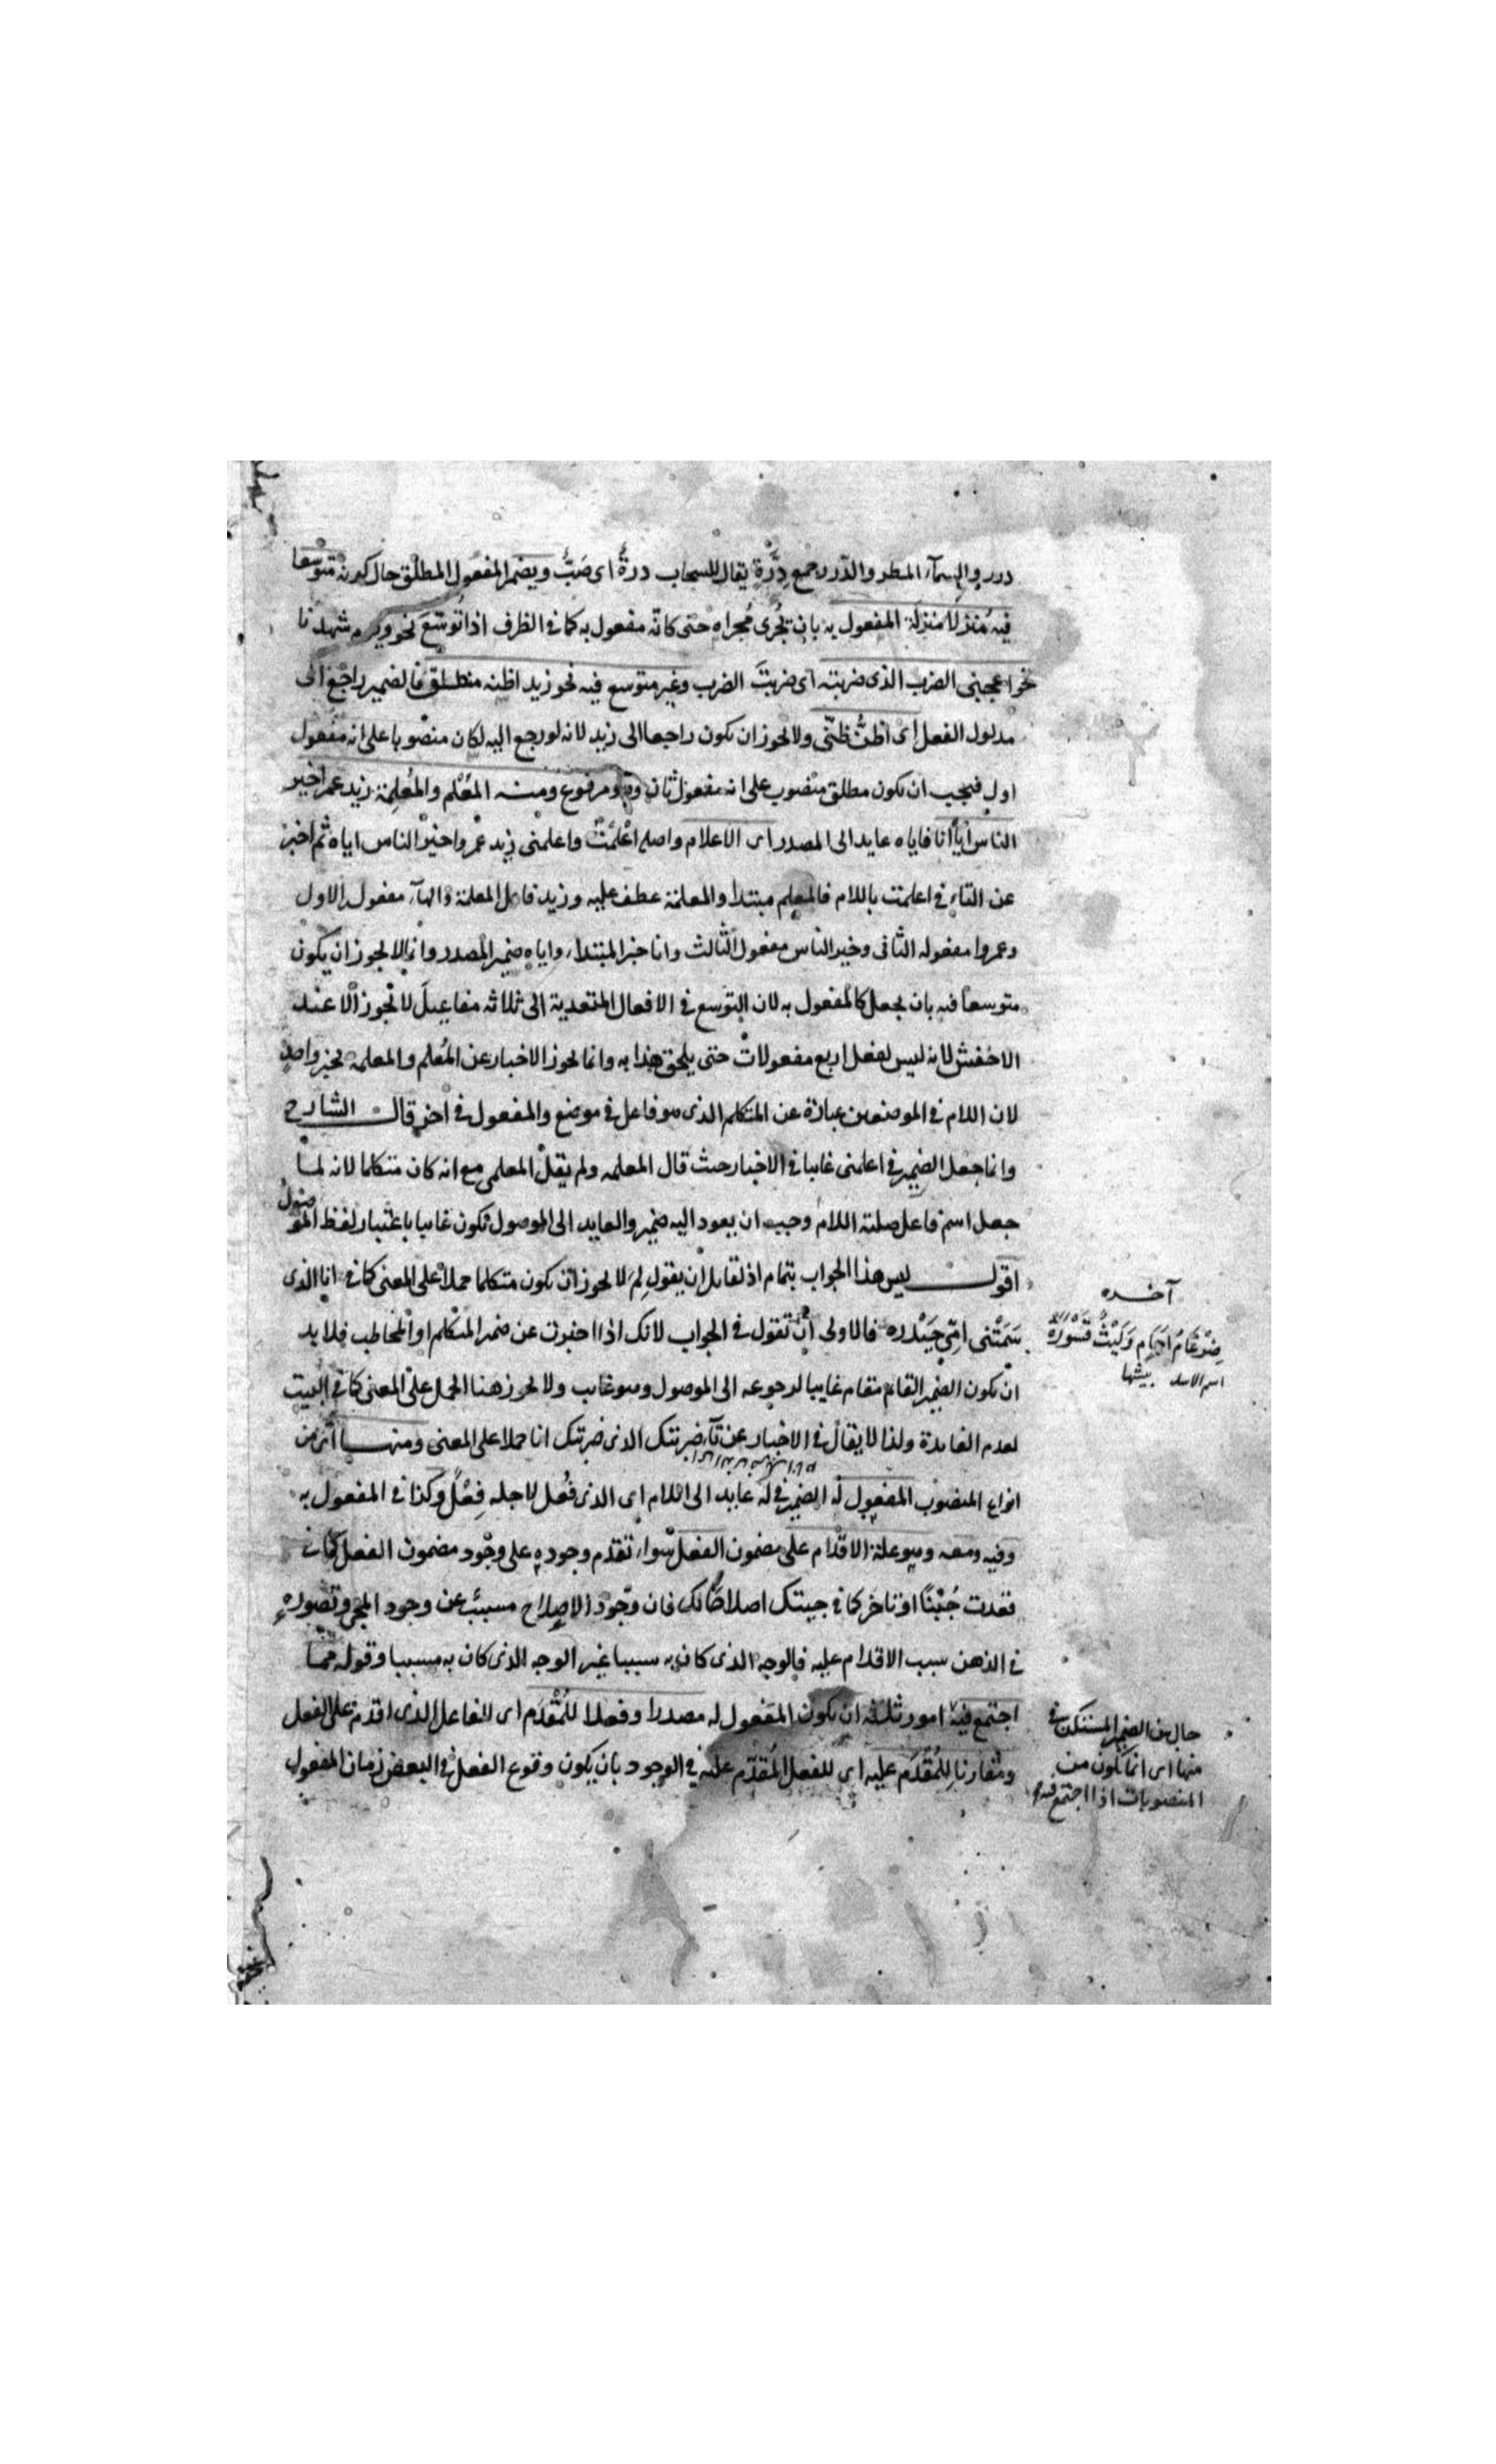 درر والسماء المطر والدرر جمع دِرَّةٍ يقال للسحاب درة اى صَبُّ ويضمر المفعول المطلق حال كونه متوسعا
فيه مُنزلا منزلة المفعول به بان يُجرى مُجراه حتى كانه مفعول به كما فى الظرف اذا تُوسّعَ نحو ويوم شهدنا
نحو اعجبنى الضرب الذى ضربته اى ضربتَ الضرب وغير متوسع فيه نحو زيد اظنه منطلق فالضمير راجع الى
مدلول الفعل اى اظنُّ ظنّى ولا يجوز ان يكون راجعا الى زيد لانه لو رجع اليه لكان منصوبا على انه مفعول
اول فيجب ان يكون مطلق منصوب على انه مفعول ثان وهو مرفوع ومنه المُعْلم والمُعلِمة زيد عمرا خير
الناس اياه انا فاياه عايد الى المصدر اى الاعلام واصله اعْلَمْتُ واعلمنى زيد عمروا خير الناس اياه ثم اخبر
عن التاء فى اعلمت باللام فالمعلم مبتدا والمعلمة عطف عليه وزيد فاعل المعلمة والهاء مفعوله الاول
وعمروا مفعوله الثانى وخير الناس مفعوله الثالث وانا خبر المبتداء واياه ضمير المصدر وانما لا يجوز ان يكون
متوسعا فيه بان يجعل كالمفعول به لان التوسع فى الافعال المتعدية الى ثلاثه مفاعيل لا تجوز الا عند
الاخفش لانه ليس لفعل اربع مفعولات حتى يلحق هذا به وانما يجوز الاخبار عن المُعلم والمعلمة بخبر واحدٍ
لان اللام فى الموضعين عبارة عن المتكلم الذى هو فاعل فى موضع والمفعول فى اخر قال الشارح
وانما جعل الضمير فى اعلمنى غايبا فى الاخبار حيث قال المعلمه ولم يقل المعلمى مع انه كان متكلما لانه لما
جعل اسم فاعل صلته اللام وجب ان يعود اليه ضمير والعايد الى الموصول يكون غايبا باعتبار لفظ الموصول
اقول ليس هذا الجواب بتمام اذ لقايل ان يقول لِمَ لا يجوز ان يكون متكلما حملا على المعنى كما فى انا الذى
سَمَّتْنى امّى حَيْدره فالاولى ان تقول فى الجواب لانك اذا اخبرت عن ضمير المتكلم او المخاطب فلا بد
ان يكون الضمير القايم مقام غايبا لرجوعه الى الموصول وهو غايب ولا يجوز هنا الحمل على المعنى كما فى البيت
لعدم الفايدة ولذا لا يقال فى الاخبار عن تآء ضربتك الذى ضربتك انا حملا على المعنى ومنها اى من
انواع المنصوب المفعول له الضمير فى له عايد الى اللام اى الذى فُعل لاجله فِعْلٌ وكذا فى المفعول به
وفيه ومعه وهو علة الاقدام على مضمون الفعل سواء تقدم وجوده على وجود مضمون الفعل كما فى
قعدت جُبْنًا او تاخر كما فى جيتك اصلاحا لك فان وجود الاصلاح مسبب عن وجود المجئ وتصوره
فى الذهن سبب الاقدام عليه فالوجه الذى كان به سببا غير الوجه الذى كان به مسببا وقوله مما
اجتمع فيه امور ثلثه ان يكون المفعول له مصدرا وفعلا للمُقْدِم اى للفاعل الذى اقدم على الفعل
ومقارنا للمُقْدَم عليه اى للفعل المُقدَم عليه فى الوجود بان يكون وقوع الفعل فى البعض زمان المفعول
آخــره
ضِرْغَامُ اجَامٍ وَلَيْثٌ قَسْوَرَهْ
اسم الاسد بيشها
حال من الضمير المستكن فى
منها اى انما يكون من
المنصوبات اذا اجتمع فيه